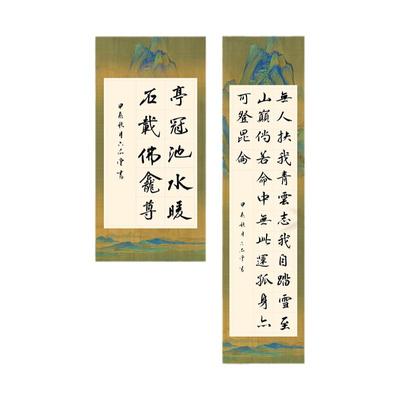 亭冠池水暖
石戴佛龕尊
甲辰秋月六 書
無人扶我青雲志我自踏雪至
山巔倘若命中無此運孤身亦
可登昆侖
甲辰秋月六 書